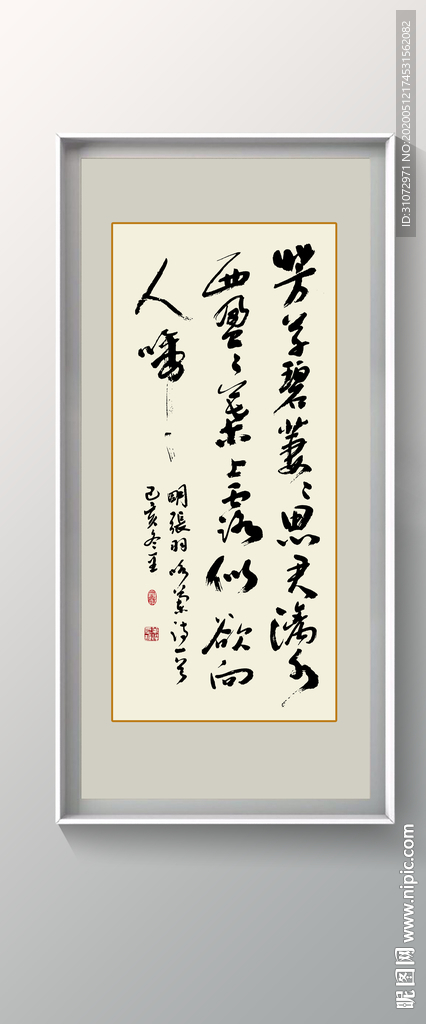 芳草碧萋〻思君漓水
西盈〻葉上露似欲向
人啼
明張羽咏蘭詩一首
己亥冬
ID:31072971 NO:20200512174531562082
昵图网 www.nipic.com